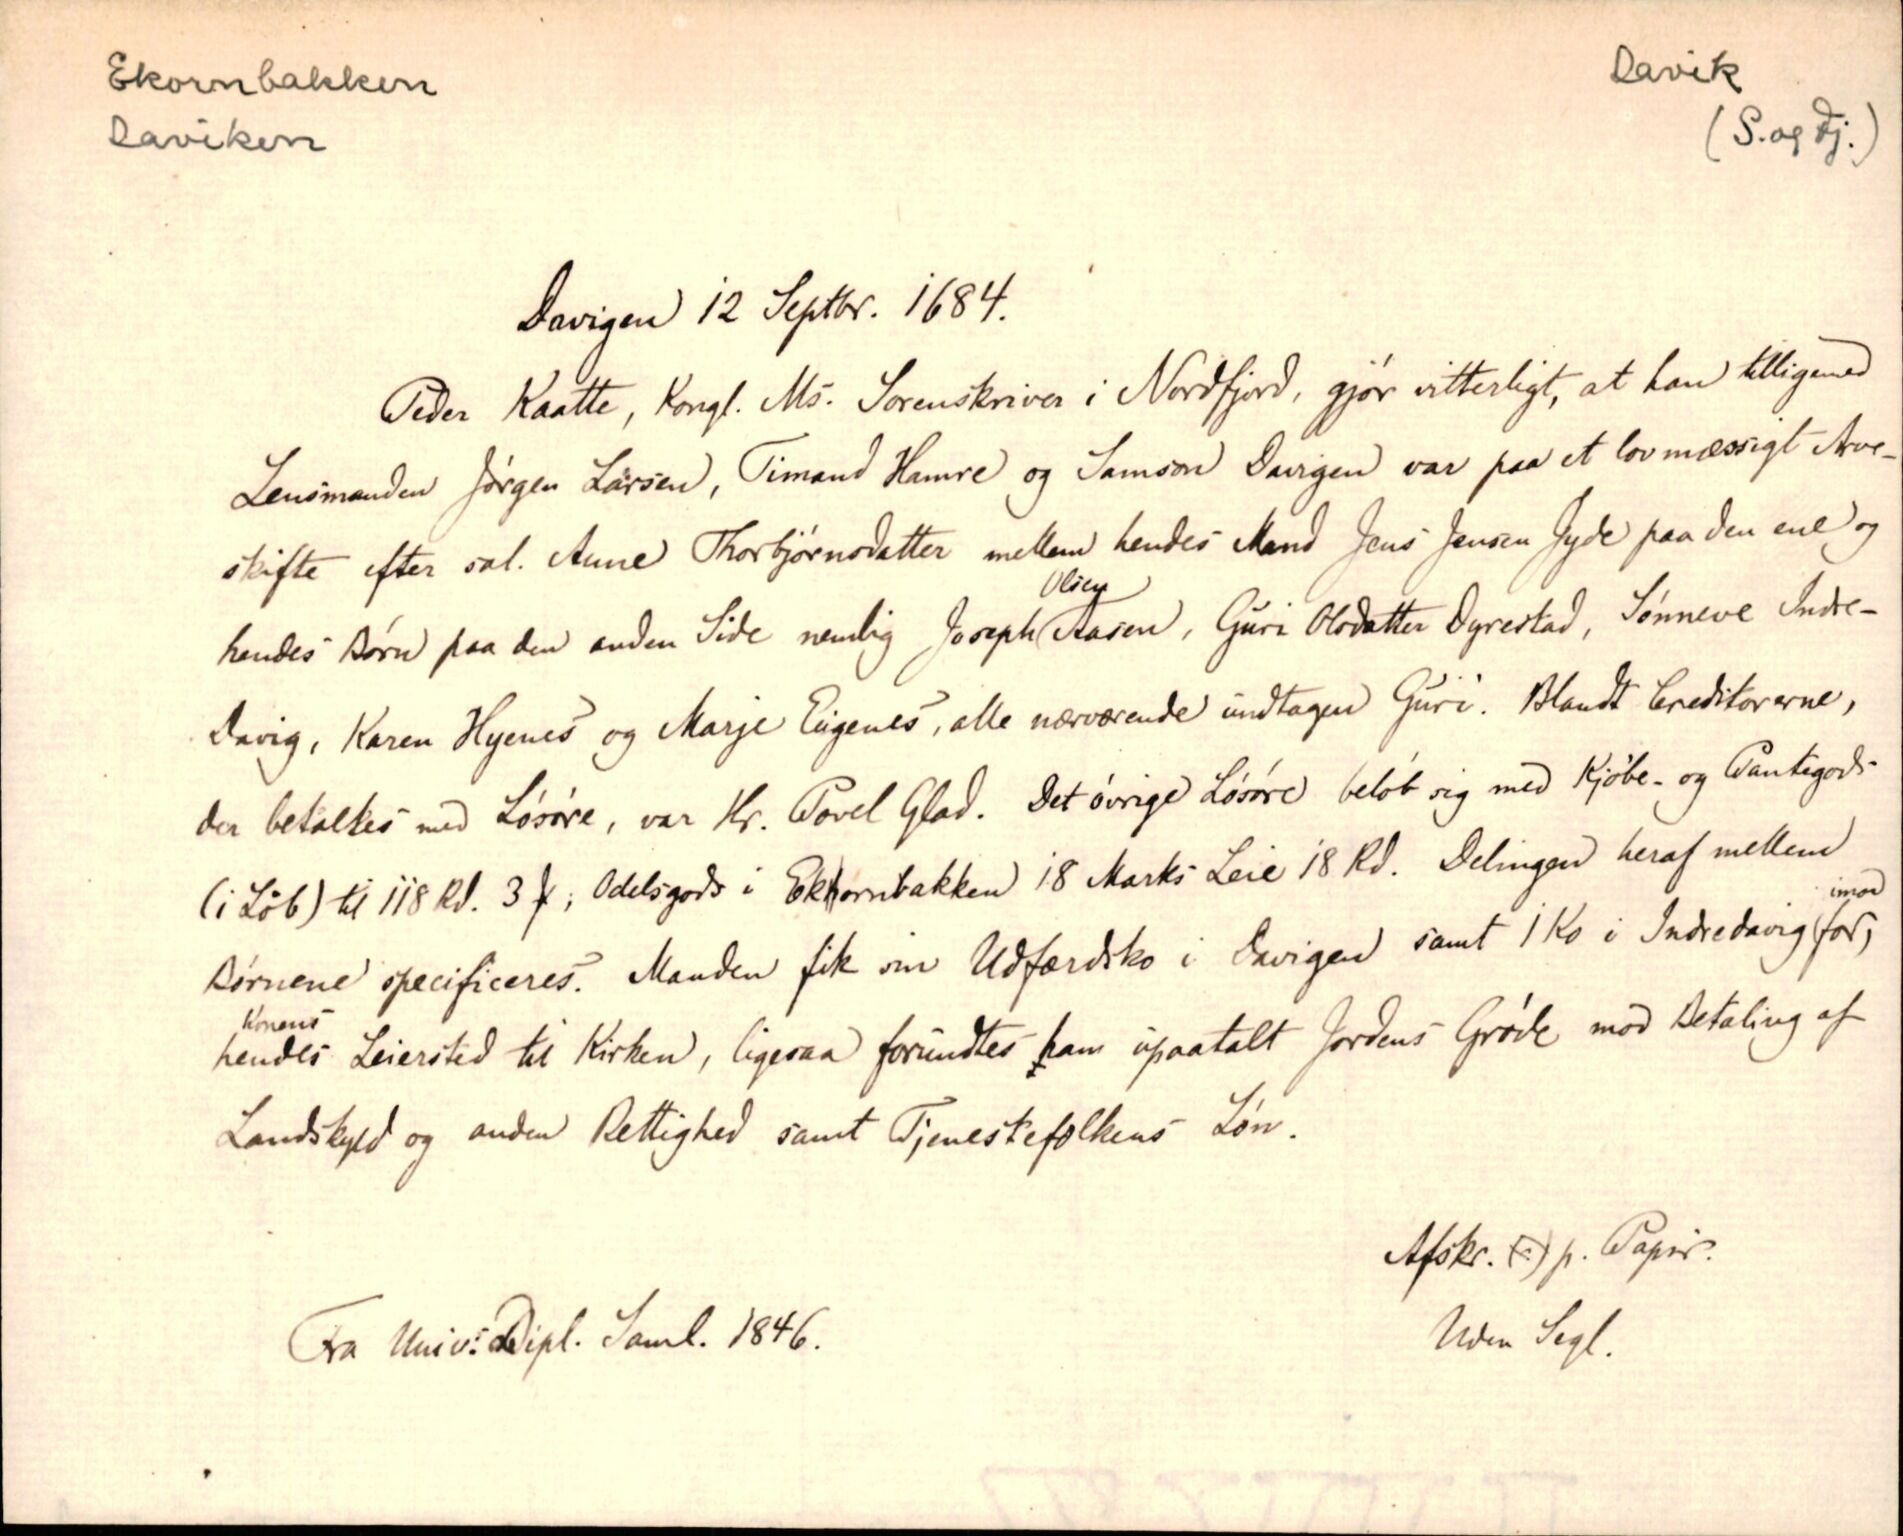 Ekornbakken
Daviken
Davik
(S. og Fj.)
Davigen 12 Septbr. 1684.
Peder Kaatte, Kongl. Ms. Sorenskriver i Nordfjord, gjór vitterligt, at han tilligemed
Lensmanden Jórgen Larsen, Timand Hamre og Samson Davigen var paa et lovmæssigt Arve-
skifte efter sal. Anne Thorbjórnsdatter mellem hendes Mand Jens Jensen Jyde paa den ene og
hendes Bórn paa den anden Side nemlig Joseph Olsen Aasen, Guri Olsdatter Dyrestad, Sónneve Indre-
Davig, Karen Hyenes og Marje Eugenes, alle nærværende undtagen Guri. Blandt Creditorerne,
der betaltes med Lósóre, var Hr. Povel Glad. Det óvrige Lósóre belób sig med Kjóbe- og Pantegods
(i Lób) til 118 Rd. 3 ; Odelsgods i Ekhornbakken 18 Marks Leie 18 Rd. Delingen heraf mellem
Bórnene specificeres. Manden fik sin Udfærdsko i Davigen samt 1 Ko i Indredavig imod for,
Konens
hendes Leiersted til Kirken, ligesaa forundtes ham upaatalt Jordens Gróde mod Betaling af
Landskyld og anden Rettighed samt Tjenestefolkens Lón.
Afskr. p. Papir.
Uden Segl.
Fra Univ:s Dipl. Saml. 1846.